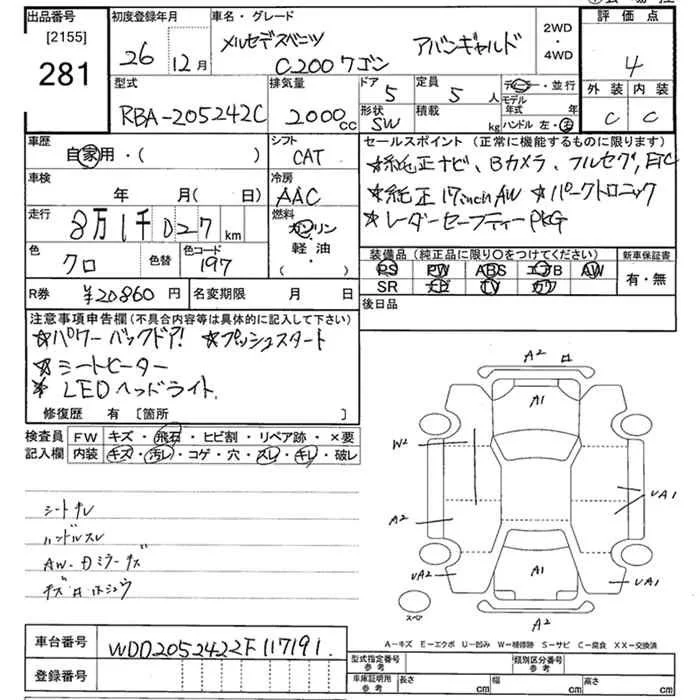 出品番号 初度登録年月 車名・グレード 評価点
[2155]
281
26年 12月
メルセデスベンツ アバンギャルド
C200 ワゴン
2WD・4WD
4
外装 内装
C C
型式 排気量 ドア 定員 ディーラー・並行
RBA-205242C 2000cc 5 5人 モデル年式 年
形状 積載
SW kg ハンドル 左・右
車歴 シフト セールスポイント (正常に機能するものに限ります)
自家用・( ) CAT ☆純正ナビ、Bカメラ、フルセグ、ETC
車検 冷房 ☆純正 17inch AW ☆パークトロニック
年 月(日) AAC ☆レーダーセーフティーPKG
走行 燃料
8万1千027km ガソリン
軽油
・( )
色 色替 色コード 装備品 (純正品に限り○をつけてください) 新車保証書
クロ 197 PS PW ABS エアB AW 有・無
SR ナビ TV カワ
R券 ¥20860円 名変期限 月 日 後日品
注意事項申告欄(不具合内容等は具体的に記入して下さい)
☆パワーバックドア! ☆プッシュスタート
☆シートヒーター
☆LEDヘッドライト
修復歴 有 [箇所 ]
検査員 FW キズ・飛石・ヒビ割・リペア跡・×要
記入欄 内装 キズ・汚レ・コゲ・穴・スレ・キレ・破レ
ハンドルスレ
A2
A1
W2
UA1
A2
UA2
A1
UA1
スペア
A2
A-キズ E-エクボ U-凹み W-補修跡 S-サビ C-腐食 XX-交換済
車台番号 WDD2052422F117191
登録番号
型式指定番号 参考 類別区分番号 参考
車庫証明用 参考 長さ cm 幅 cm 高さ cm